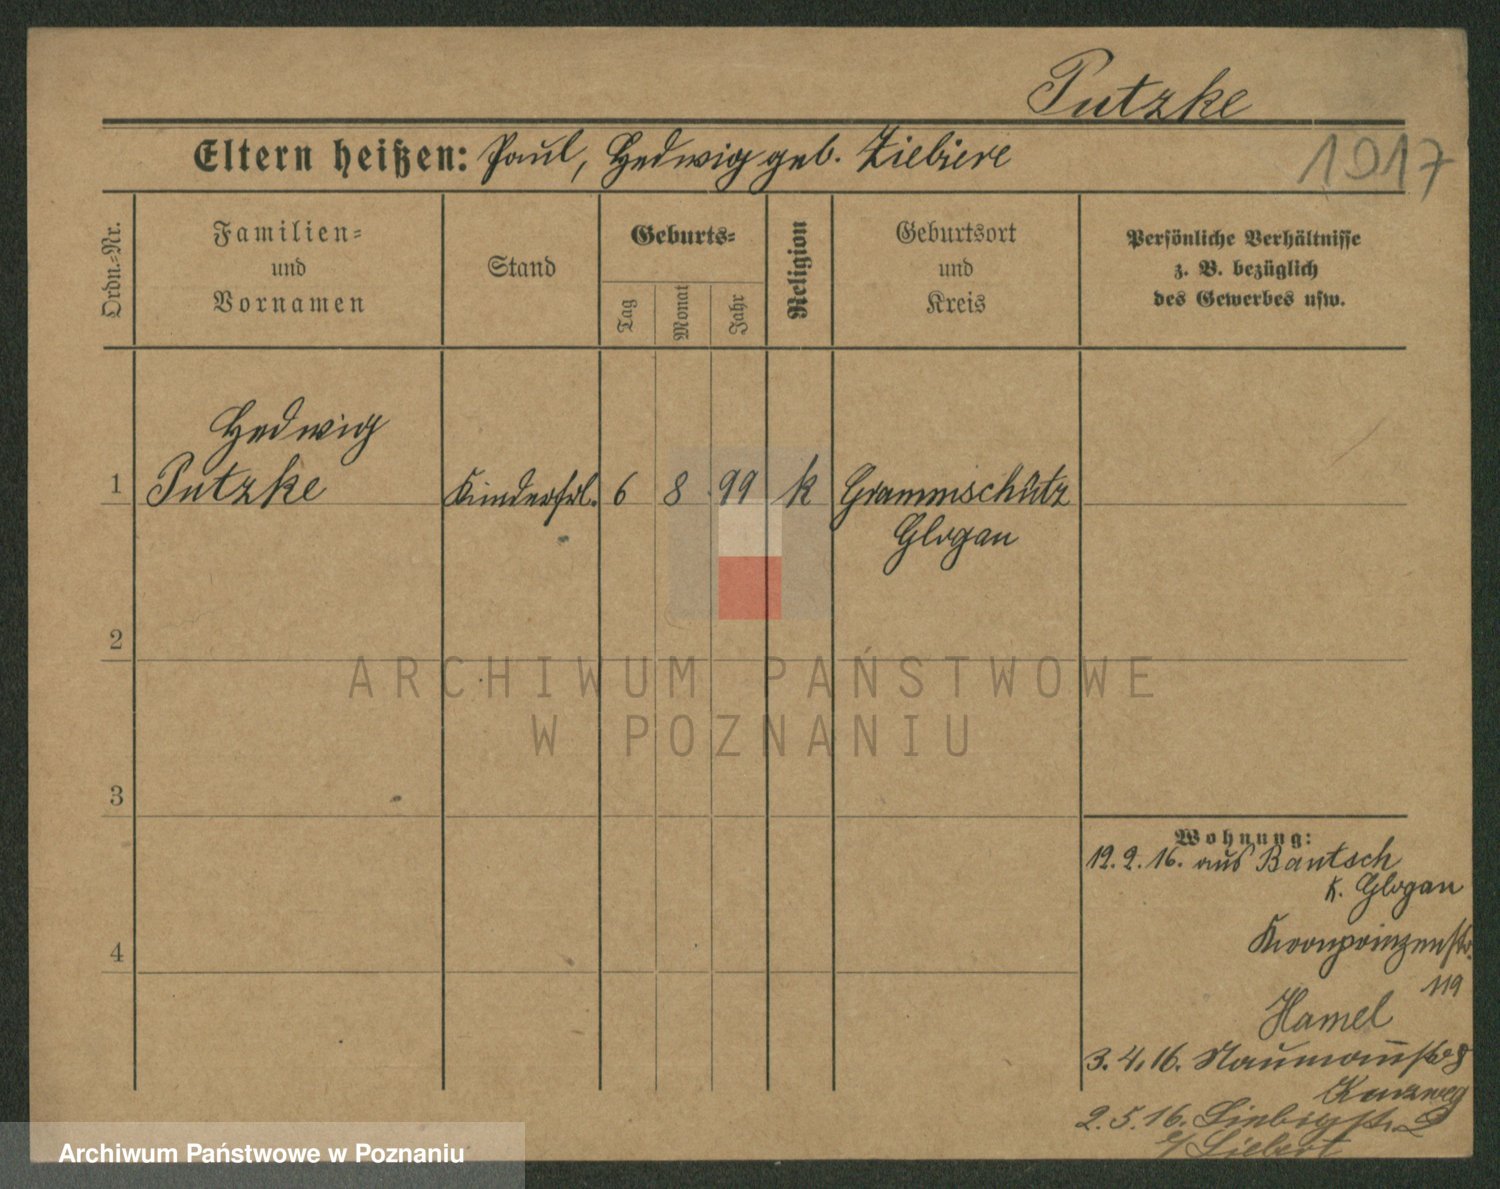 Putzke
Eltern heißen: Paul, Hedwig geb. Ziebiere
1917
Ordn.-Nr.
Familien-
und
Vornamen
Stand
Geburts-
Tag
Monat
Jahr
Religion
Geburtsort
und
Kreis
Persönliche Verhältnisse
z. B. bezüglich
des Gewerbes usw.
Hedwig
1 Putzke Kinderfrl. 6 8 99 k Grammschütz
Glogau
2
3
4
ARCHIWUM PAŃSTWOWE
W POZNANIU
Wohnung:
12.2.16. aus Bautsch
K. Glogau
Kronprinzenstr.
119
Hamel
3.4.16. Naumannstr 8
2.5.16. Liebigstr. 2
b/ Liebert
Archiwum Państwowe w Poznaniu